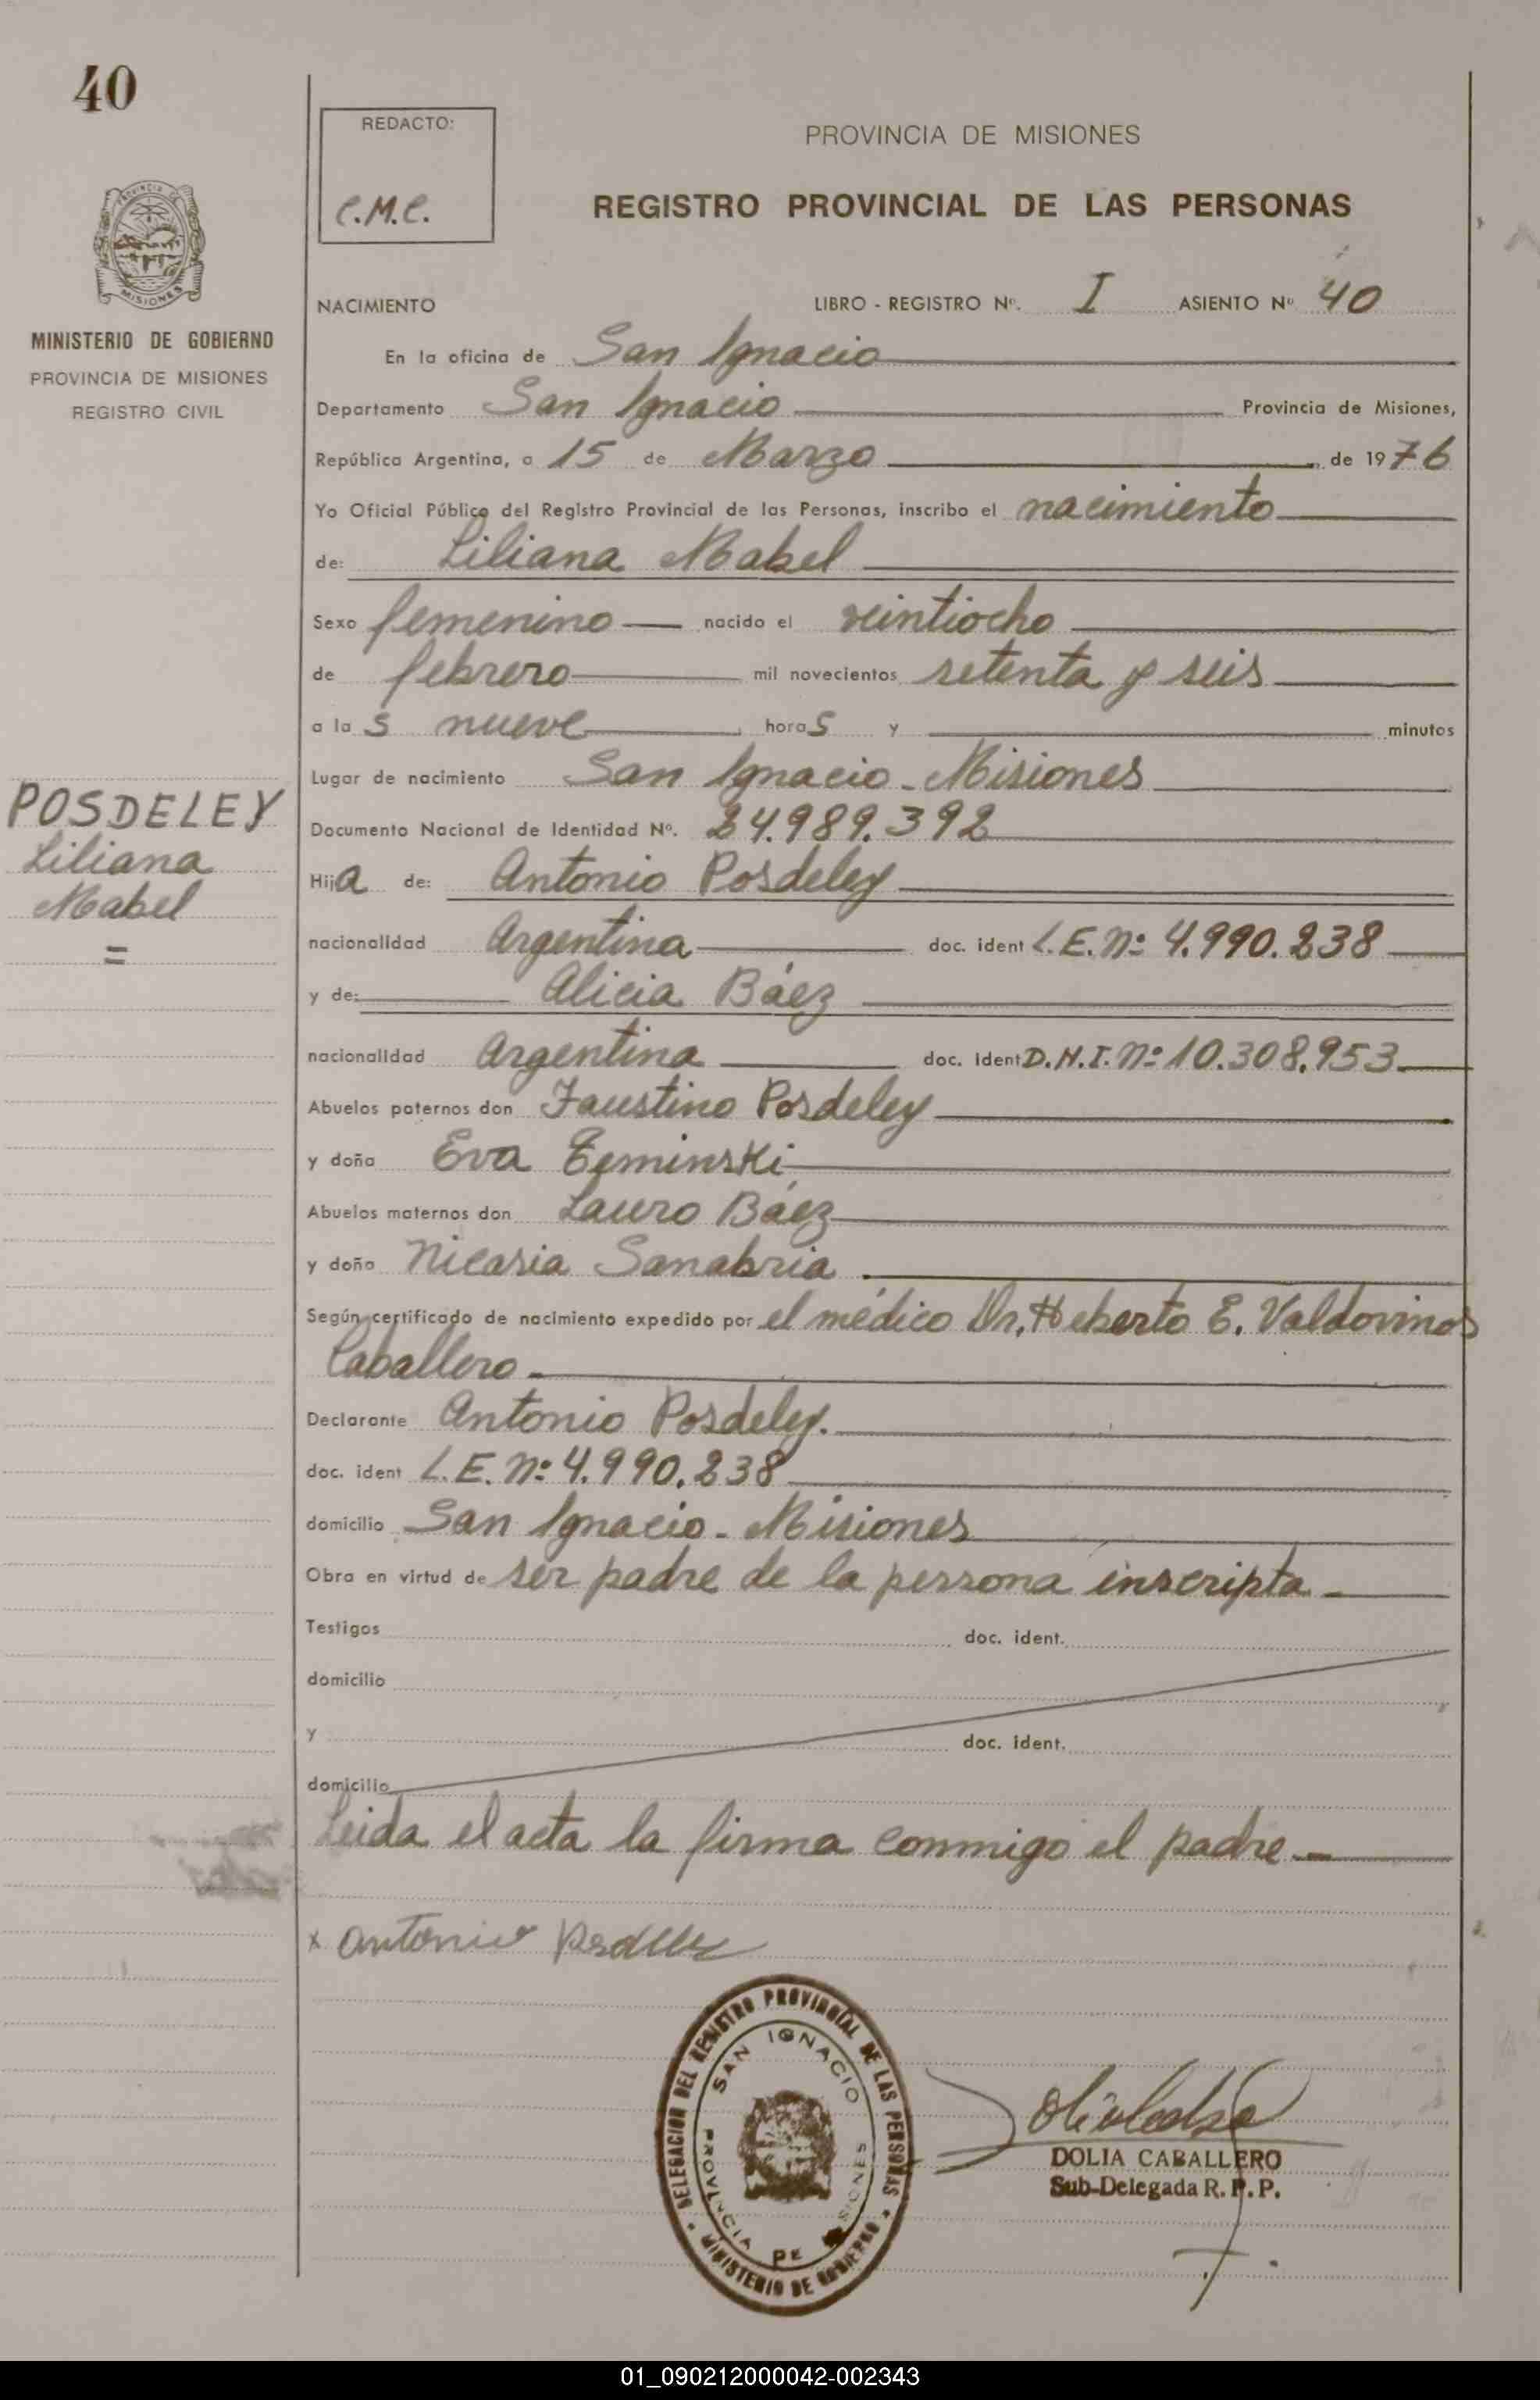 40
REDACTO:
C.M.C.
PROVINCIA DE MISIONES
REGISTRO PROVINCIAL DE LAS PERSONAS
PROVINCIA DE
MISIONES
MINISTERIO DE GOBIERNO
PROVINCIA DE MISIONES
REGISTRO CIVIL
NACIMIENTO LIBRO - REGISTRO Nº. I ASIENTO Nº 40
En la oficina de San Ignacio
Departamento San Ignacio Provincia de Misiones,
República Argentina, a 15 de Marzo de 1976
Yo Oficial Público del Registro Provincial de las Personas, inscribo el nacimiento
de: Liliana Mabel
Sexo femenino nacido el veintiocho
de febrero mil novecientos setenta y seis
a las nueve horas y minutos
Lugar de nacimiento San Ignacio - Misiones
POSDELEY
Liliana
Mabel
=
Documento Nacional de Identidad Nº. 24.989.392
Hija de: Antonio Posdeley
nacionalidad Argentina doc. ident L.E. nº 4.990.238
y de: Alicia Báez
nacionalidad Argentina doc. ident D.N.I. nº 10.308.953.
Abuelos paternos don Faustino Posdeley
y doña Eva Zeminski
Abuelos maternos don Lauro Báez
y doña Nicasia Sanabria
Según certificado de nacimiento expedido por el médico Dr. Heberto E. Valdovinos
Caballero -
Declarante Antonio Posdeley.
doc. ident L.E. nº 4.990.238
domicilio San Ignacio - Misiones
Obra en virtud de ser padre de la persona inscripta -
Testigos doc. ident.
domicilio
y doc. ident.
domicilio
Leida el acta la firma conmigo el padre. -
x Antonio
DELEGACION DEL REGISTRO PROVINCIAL DE LAS PERSONAS
MINISTERIO DE GOBIERNO
SAN IGNACIO
PROVINCIA DE MISIONES
DOLIA CABALLERO
Sub-Delegada R. P. P.
01_090212000042-002343